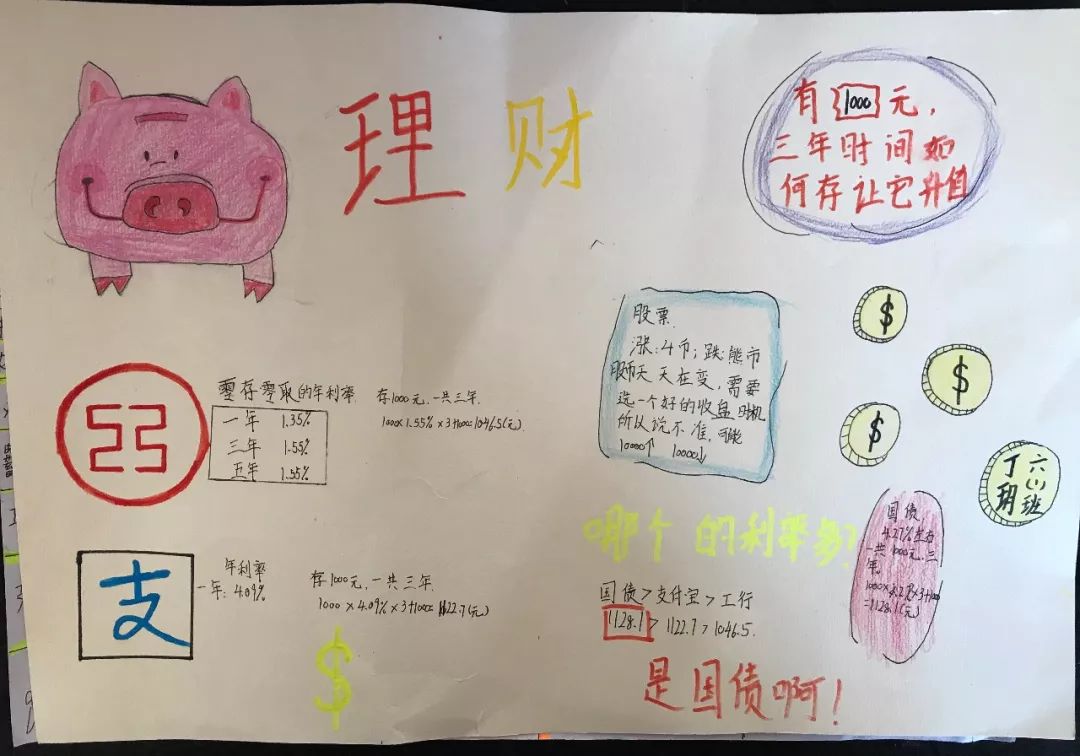 理财
有1000元，
三年时间如
何存让它升值
股票
涨：牛市；跌：熊市
股市天天在变，需要
选一个好的收盘时机
所以说不准，可能
10000↑ 10000↓
$
$
$
六(1)班
丁玥
零存零取的年利率
一年 1.35%
三年 1.55%
五年 1.55%
存1000元，一共三年。
1000×1.55%×3+1000=1046.5(元)
支
年利率
一年：4.09%
存1000元，一共三年
1000×4.09%×3+1000=1122.7(元)
$
哪个的利率多？
国债>支付宝>工行
1128.1>1122.7>1046.5.
是国债啊！
国债
4.27%左右
一共1000元，三
年。
1000×4.27%×3+1000
=1128.1(元)